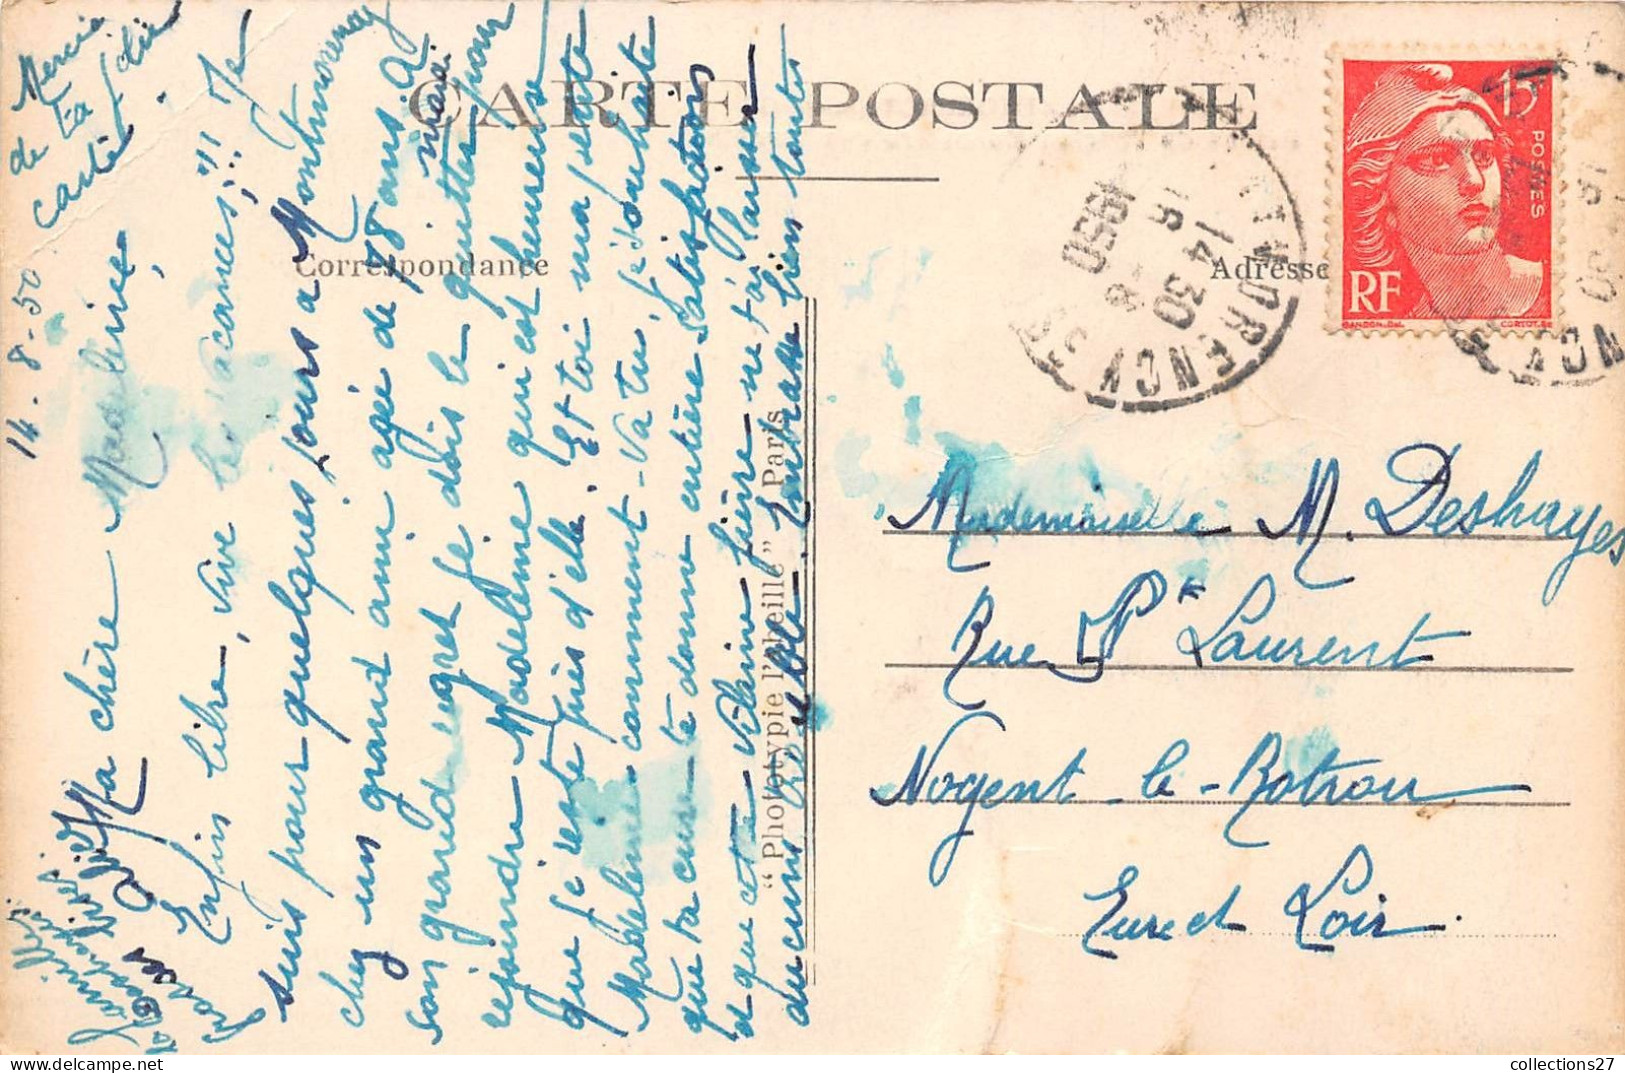 CARTE POSTALE
Correspondance
Adresse
"Phototypie l'abeille" Paris
14-8-50
Merci
de ta
carte
Ma chère Madeleine,
Enfin libre, vive les vacances,!! Je
suis pour quelques jours à Montmorency
chez un grand ami agé de 78 ans. A
son grand regret je dois le quitter mardi pour
rejoindre Madeleine qui est heureuse
que je reste près d'elle. Et toi ma petite
Madeleine comment-va tu, je souhaite
que ta cure te donne entière satisfaction
et que cette vilaine fièvre ne t'ai laissée
aucun
Embrasse bien toute
famille
Mademoiselle M. Deshayes
Rue St Laurent
Nogent-le-Rotrou
Eure et Loir.
MONTMORENCY
14 30
16 - 8
1950
15
POSTES
RF
GANDON-DEL.
CORTOT-SC
collections27